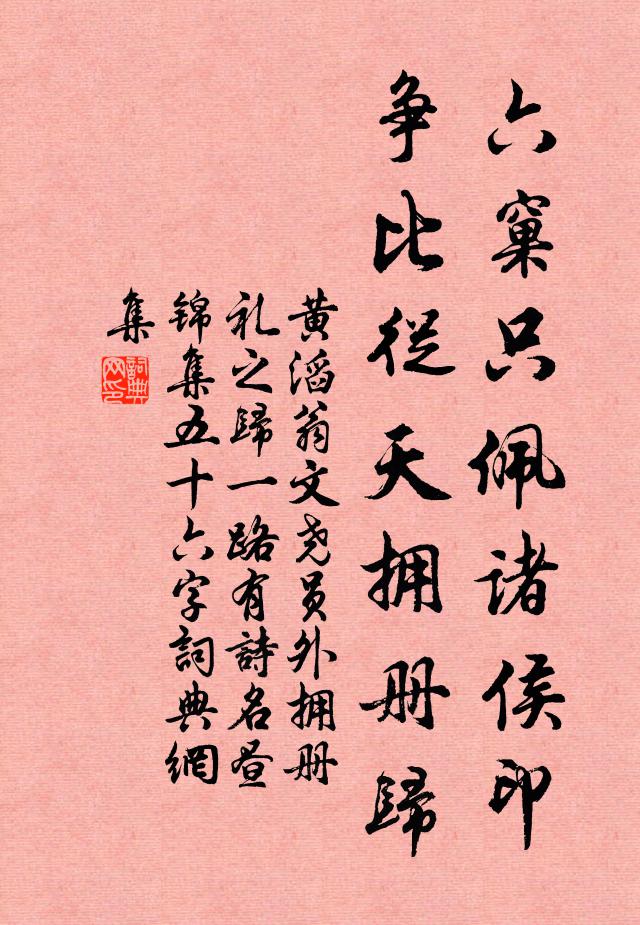 六窠只佩诸侯印
争比從天拥册歸
黄滔翁文尧员外拥册
礼之歸一路有詩名昼
锦集五十六字詞典網
集
詞典网印